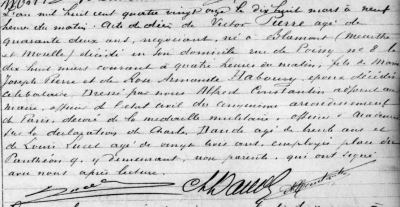 L'an mil huit cent quatre vingt onze le dix huit mars à neuf
heures du matin. Acte de décès de Victor Pierre agé de
quarante deux ans, négociant, né à Blamont (Meurthe
et Moselle) décédé en son domicile rue de Poissy No 8 le
dix huit mars courant à quatre heures du matin, fils de
Joseph Pierre et de Rose Armande Habourg, époux décédés
célibataire. Dressé par nous Alfred Constantin adjoint au
maire, officier de l'état civil du cinquième arrondissement
de Paris, décoré de la médaille militaire, officier d'académie
sur la déclaration de Charles Daude agé de trente ans et
de Louis Sucet agé de vingt trois ans, employés, place du
Panthéon 9, y demeurant, non parents, qui ont signé
avec nous après lecture.